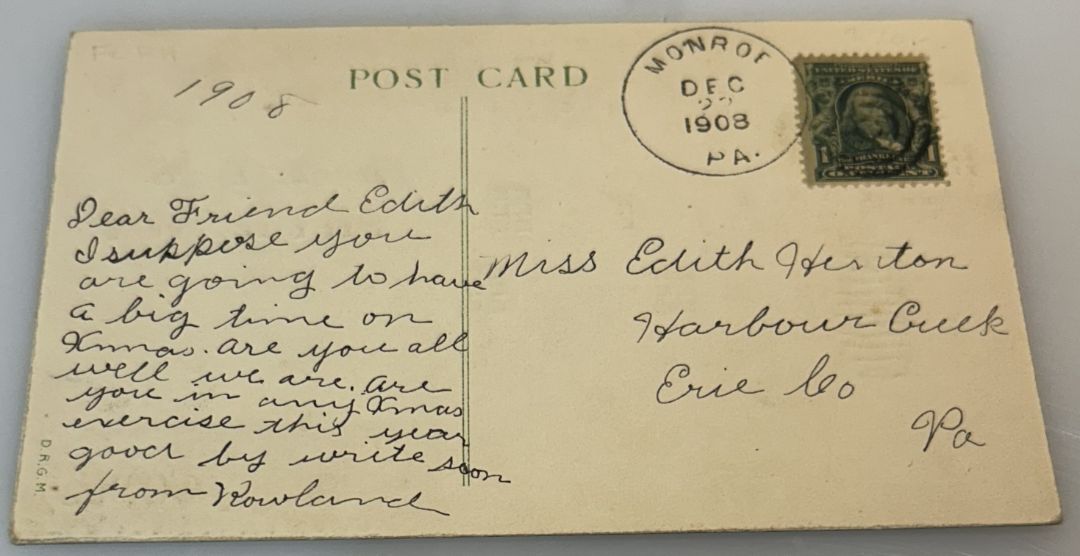 1908
POST CARD
MONROE
DEC
22
1908
PA.
UNITED STATES OF
AMERICA
1 POSTAGE 1
ONE CENT
Dear Friend Edith
I suppose you
are going to have
a big time on
Xmas. are you all
well we are. Are
you in any Xmas
exercise this year
good by write soon
from Rowland
Miss Edith Henton
Harbour Creek
Erie Co
Pa
D.R.G.M.